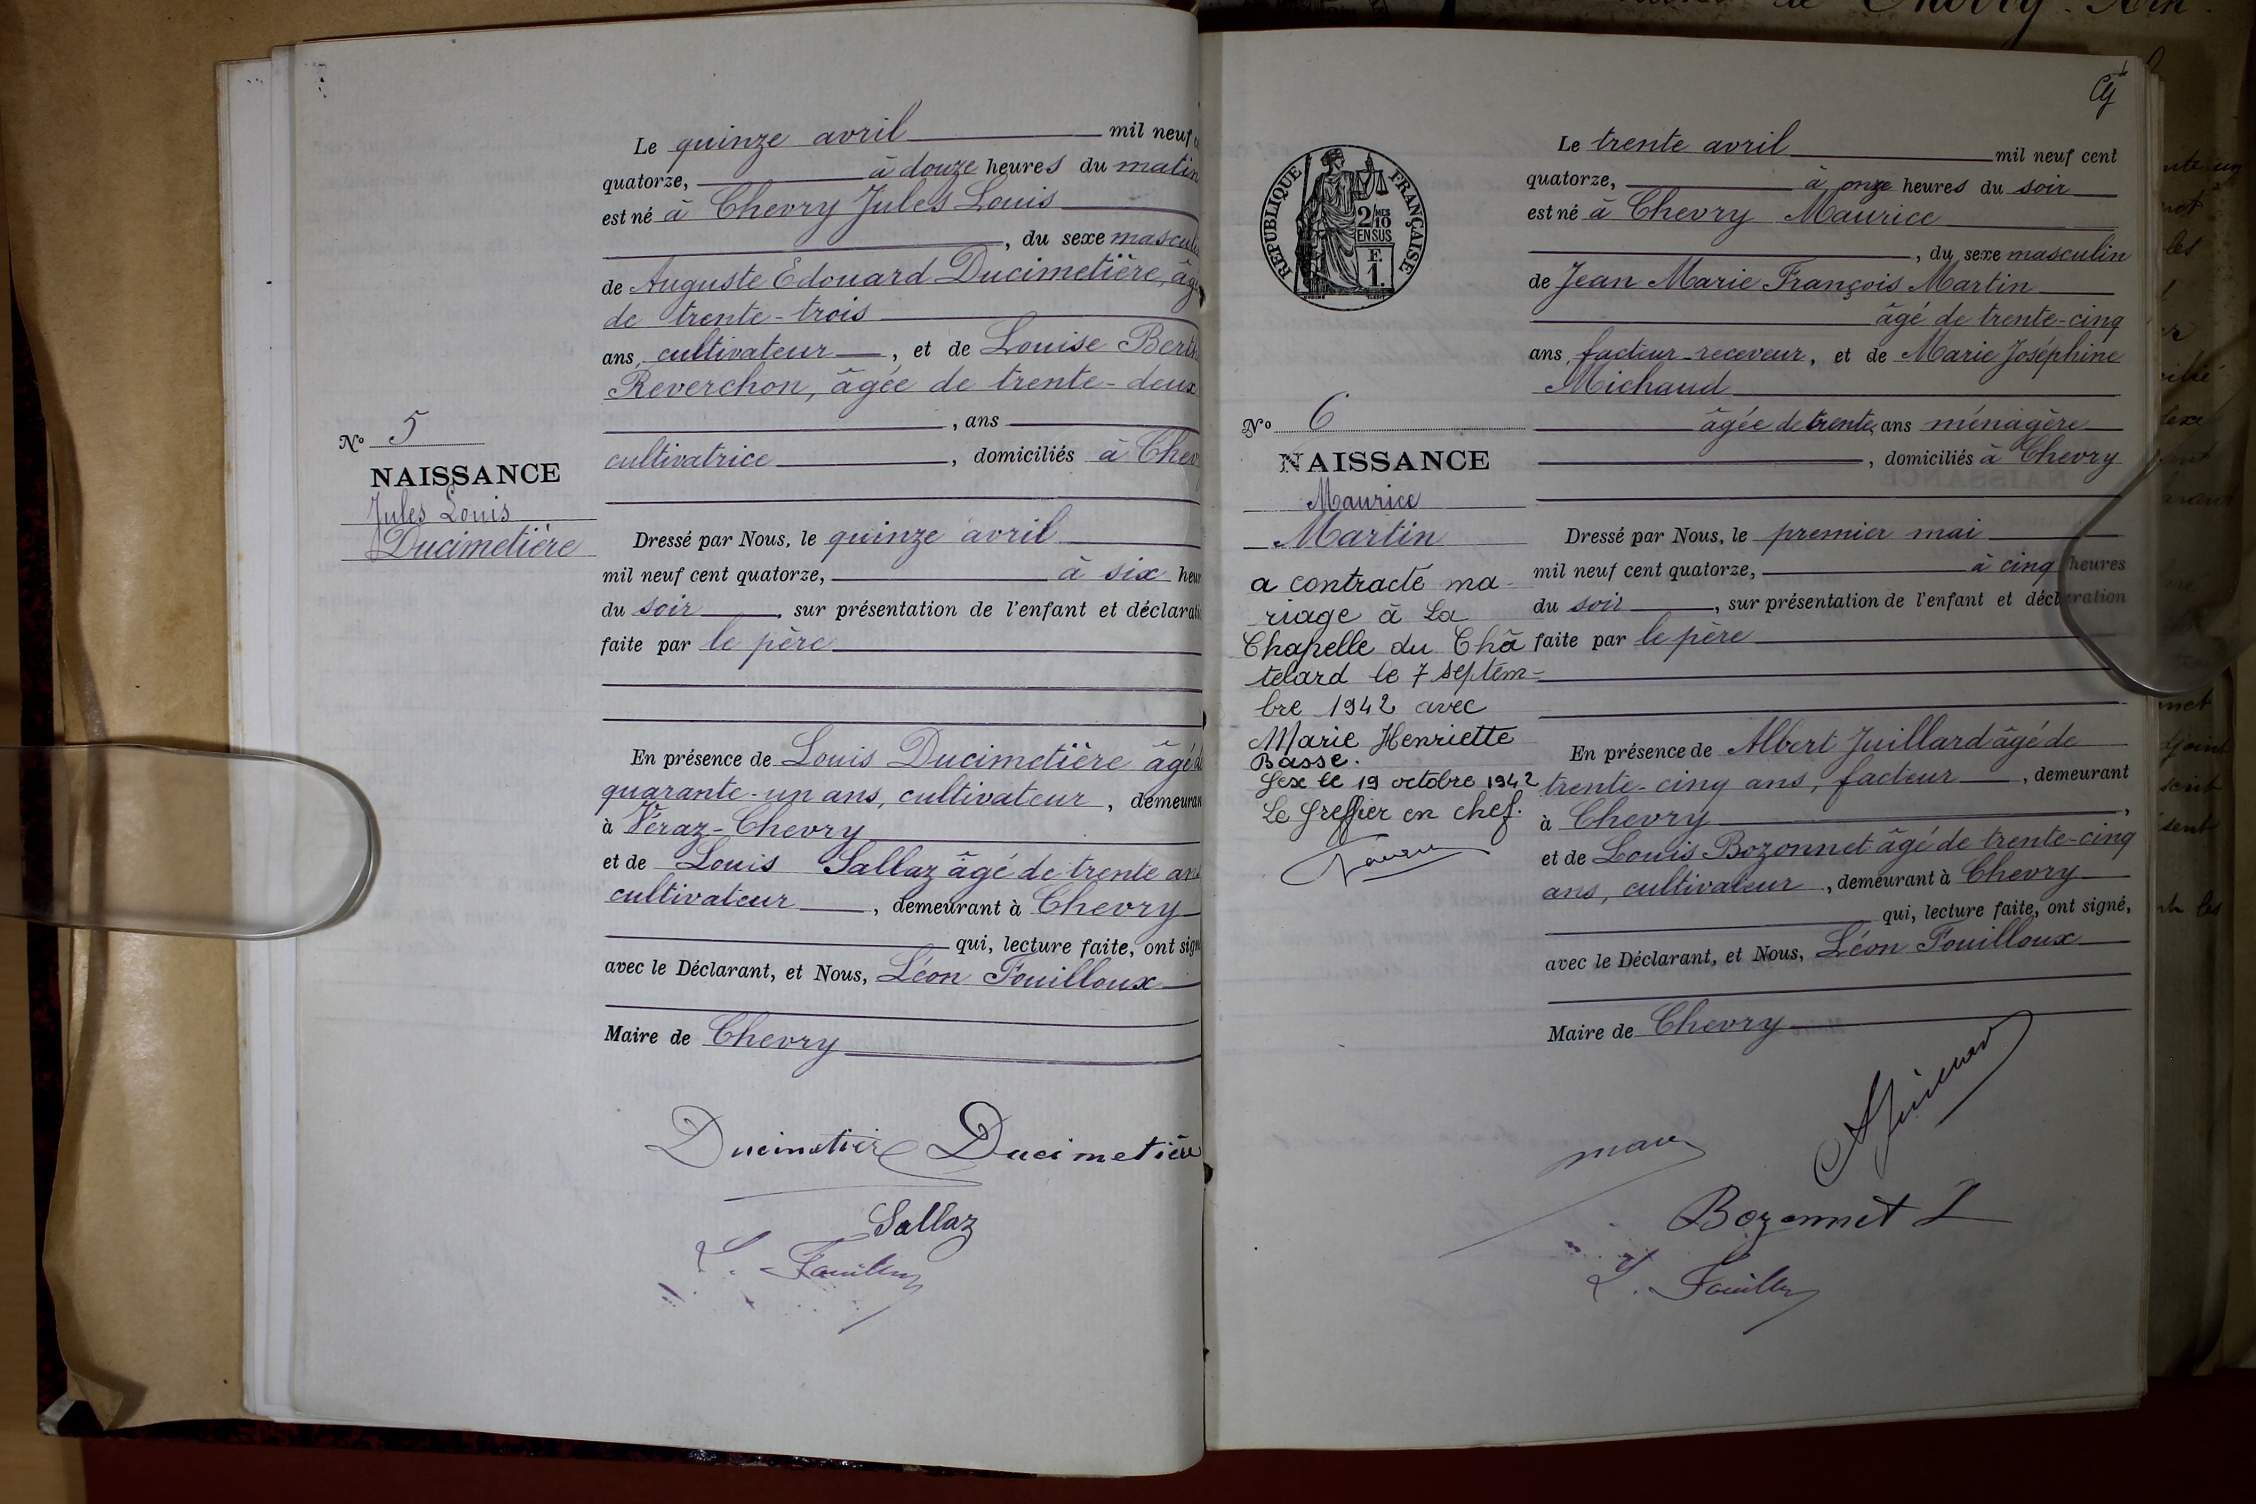 Le quinze avril mil neuf
quatorze, à douze heures du matin
est né à Chevry Jules Louis
, du sexe masculin
de Auguste Edouard Ducimetière, âgé
de trente-trois
ans, cultivateur, et de Louise Berth
Reverchon, âgée de trente-deux
, ans
cultivatrice, domiciliés à Chev
No 5
NAISSANCE
Jules Louis
Ducimetière
Dressé par Nous, le quinze avril
mil neuf cent quatorze, à six heur
du soir, sur présentation de l'enfant et déclarati
faite par le père
En présence de Louis Ducimetière âgé de
quarante-un ans, cultivateur, demeuran
à Véraz-Chevry
et de Louis Sallaz âgé de trente ans
cultivateur, demeurant à Chevry
qui, lecture faite, ont sign
avec le Déclarant, et Nous, Léon Fouilloux
Maire de Chevry
Ducimetière Ducimetière
Sallaz
L. Fouilloux
RÉPUBLIQUE FRANÇAISE
2/10 MES
EN SUS
F.
1.
Le trente avril mil neuf cent
quatorze, à onze heures du soir
est né à Chevry Maurice
, du sexe masculin
de Jean Marie François Martin
âgé de trente-cinq
ans, facteur-receveur, et de Marie Joséphine
Michaud
âgée de trente, ans ménagère
, domiciliés à Chevry
No 6
NAISSANCE
Maurice
Martin
a contracté ma-
riage à La
Chapelle du Châ
telard le 7 septem-
bre 1942 avec
Marie Henriette
Basse.
Gex le 19 octobre 1942
Le Greffier en chef.
Dressé par Nous, le premier mai
mil neuf cent quatorze, à cinq heures
du soir, sur présentation de l'enfant et déclaration
faite par le père
En présence de Albert Juillard âgé de
trente-cinq ans, facteur, demeurant
à Chevry,
et de Louis Bozonnet âgé de trente-cinq
ans, cultivateur, demeurant à Chevry
qui, lecture faite, ont signé,
avec le Déclarant, et Nous, Léon Fouilloux
Maire de Chevry
A Juillard
Bozonnet L
L. Fouilloux